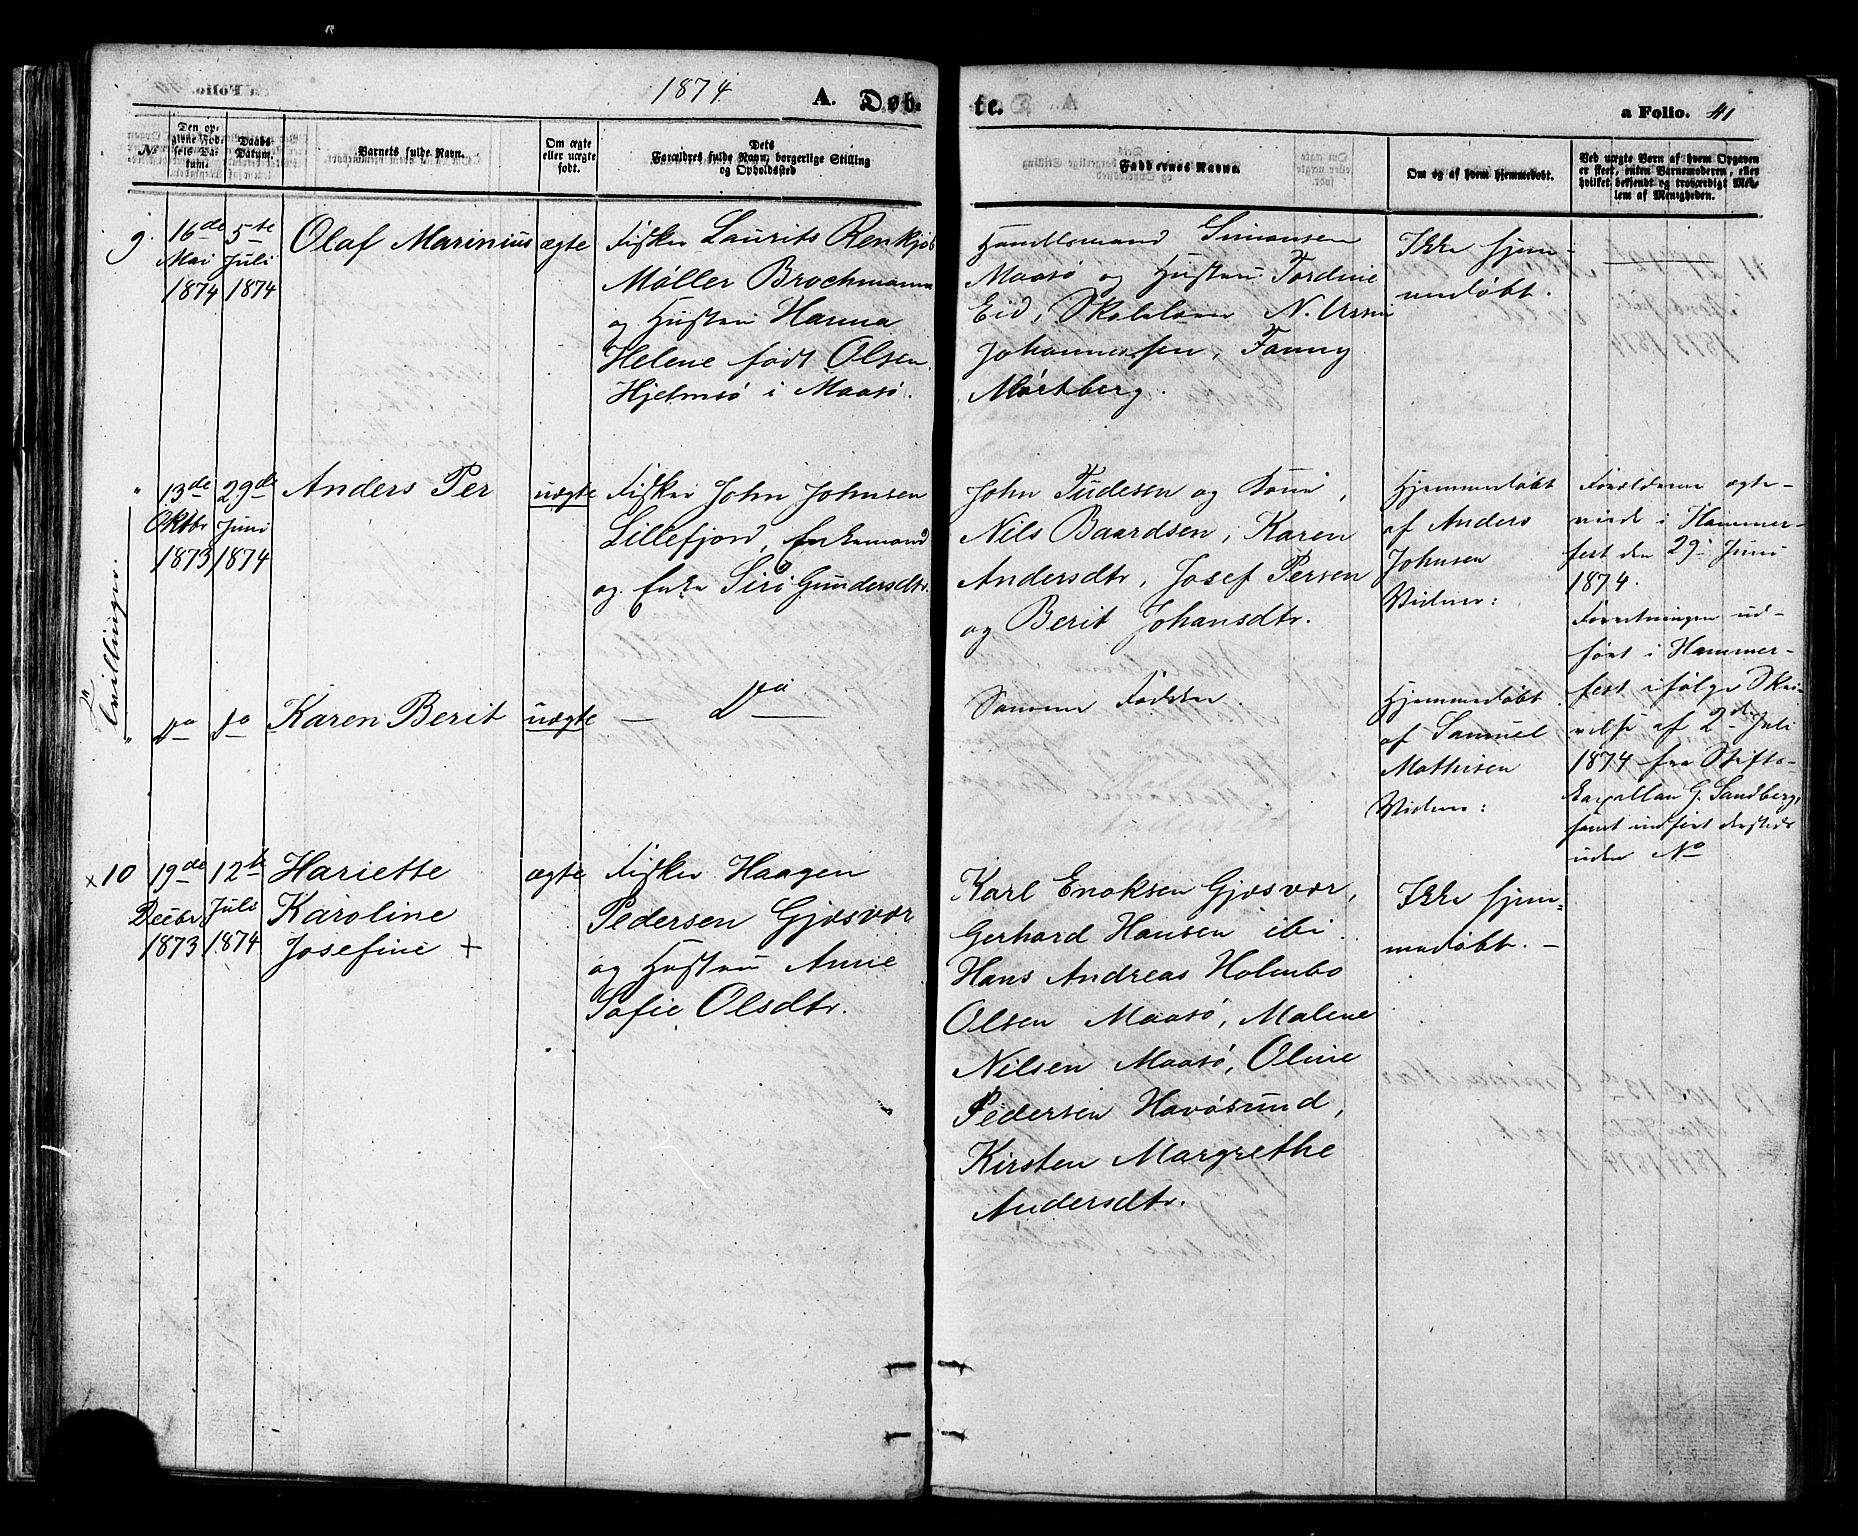 1874.
A. Døb-
te.
a Folio. 41
No
Den op-
givne Fød-
sels Da-
tum.
Daabs-
Datum.
Barnets fulde Navn.
Om ægte
eller uægte
født.
Dets
Forældres fulde Navn, borgerlige Stilling
og Opholdssted
Faddernes Navne.
Om og af hvem hjemmedøbt.
Ved uægte Børn af hvem Opgaven
er skeet, enten Barnemoderen, eller
hvilket bekjendt og troværdigt Med-
lem af Menigheden.
9.
16de
Mai
1874
5te
Juli
1874
Olaf Marinius
ægte
Fisker Laurits Renkjøb
Møller Brochmann
og Hustru Hanna
Helene født Olsen.
Hjelmsø i Maasø.
Handelsmand Simonsen
Maasø og Hustru Tordine
Eid, Skolelærer N. Ursin
Johannessen, Fanny
Mørkberg.
Ikke hjem-
medøbt.
Tvillinger.
"
13de
Oktbr
1873
29de
Juni
1874
Anders Per
uægte
Fisker John Johnsen
Lillefjord, Enkemand
og Enke Siri Gundersdtr.
John Tudesen og Kone,
Nils Baardsen, Karen
Andersdtr, Josef Persen
og Berit Johansdtr.
Hjemmedøbt
af Anders
Johnsen
Vidner:
Forældrene ægte-
viede i Hammer-
fest den 29de Juni
1874.
Forretningen ud-
ført i Hammer-
fest ifølge Skri-
velse af 2den Juli
1874 fra Stifts-
kapellan G. Sandberg,
samt indført dersteds
under No
"
Do
Do
Karen Berit
uægte
— Do —
Samme Faddere.
Hjemmedøbt
af Samuel
Mathisen
Vidner:
x 10
19de
Decbr
1873
12te
Juli
1874
Hariette
Karoline
Josefine +
ægte
Fisker Haagen
Pedersen Gjæsvær
og Hustru Anne
Sofie Olsdtr.
Karl Enoksen Gjæsvær,
Gerhard Hansen ibi.
Hans Andreas Holmbo
Olsen Maasø, Malene
Nilsen Maasø, Oline
Pedersen Havøsund,
Kirsten Margrethe
Andersdtr.
Ikke hjem-
medøbt. —